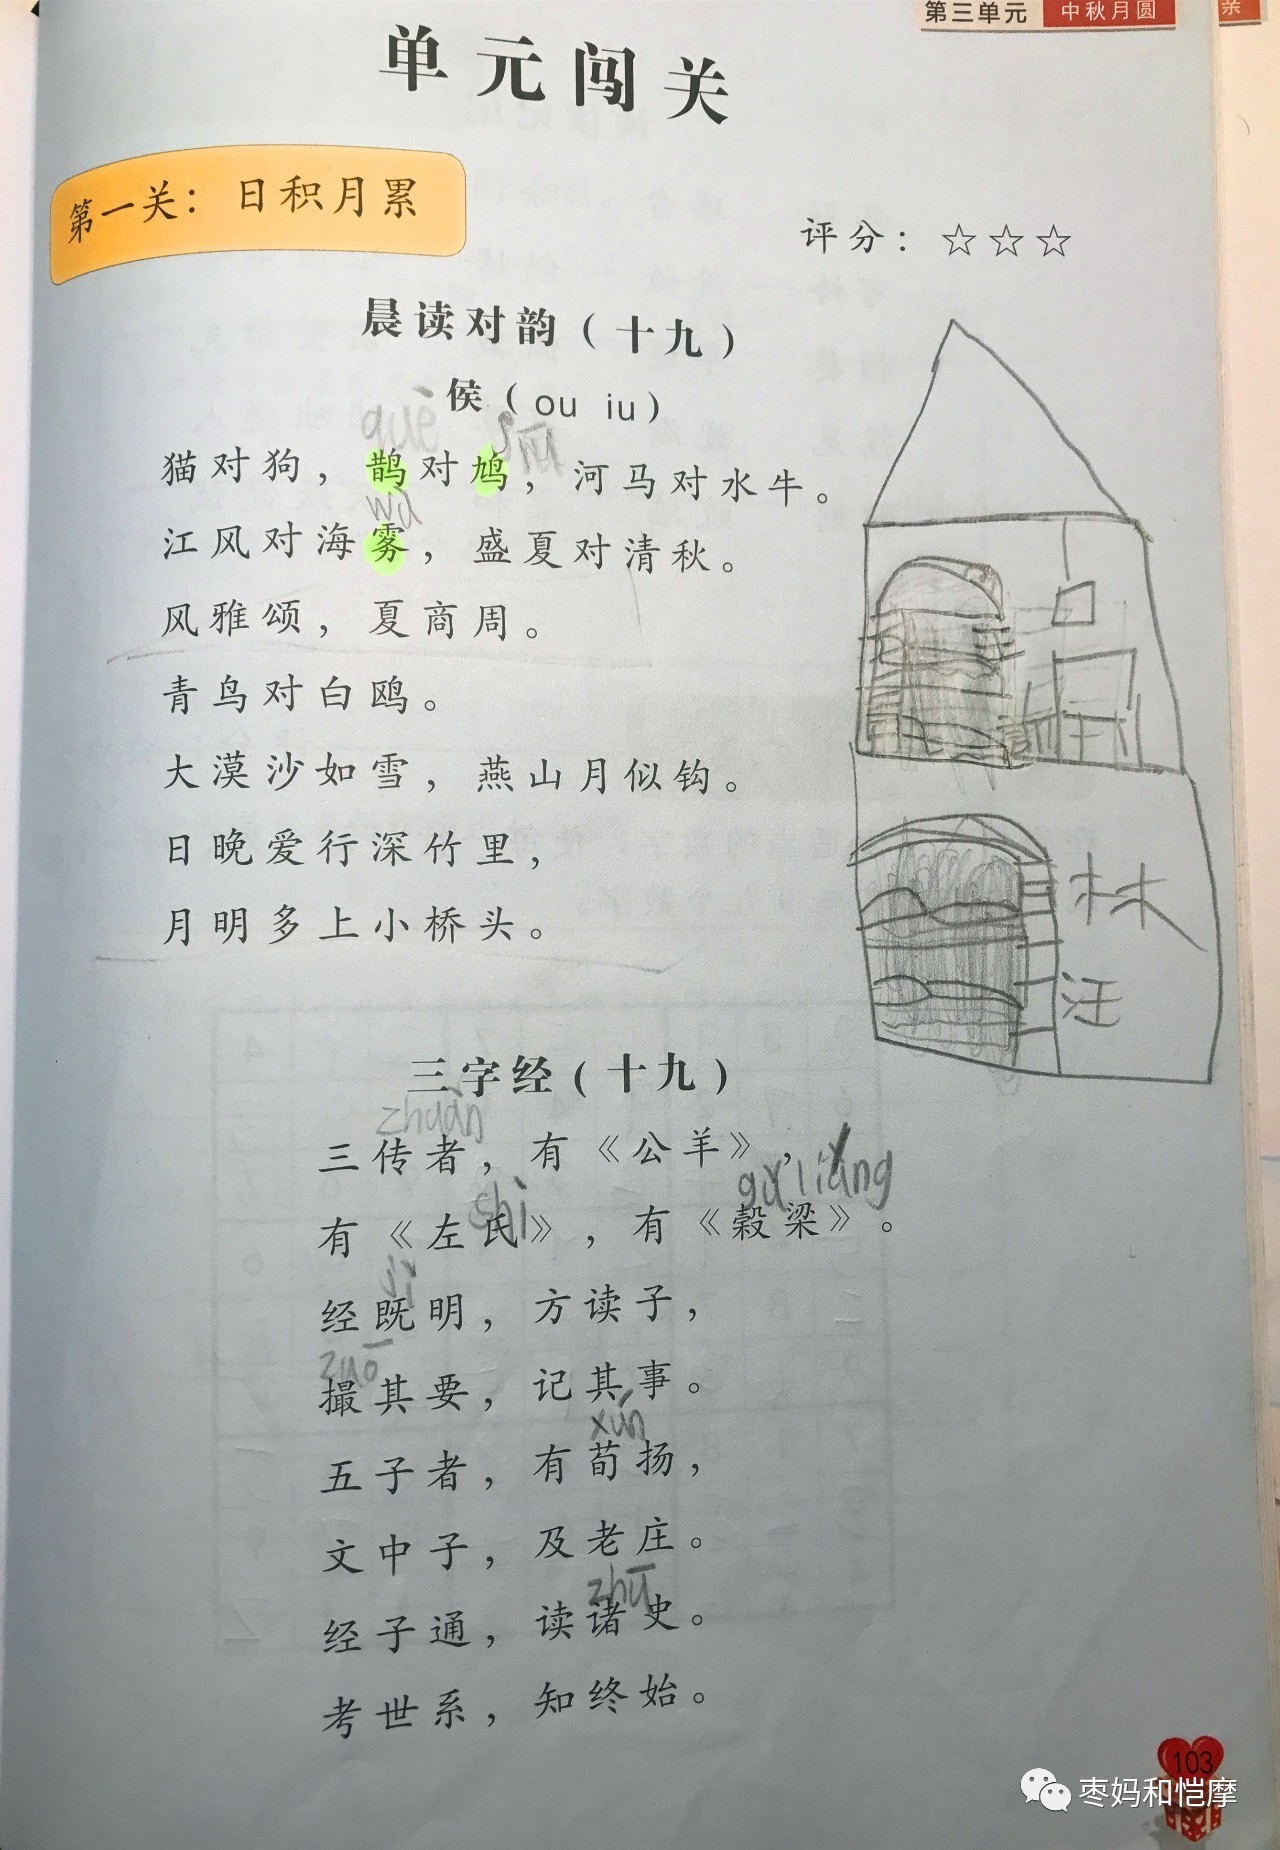 第三单元 中秋月圆
亲
单元闯关
第一关：日积月累
评分：☆☆☆
晨读对韵（十九）
侯（ou iu）
què
猫对狗，鹊对鸠，河马对水牛。
wù
江风对海雾，盛夏对清秋。
风雅颂，夏商周。
青鸟对白鸥。
大漠沙如雪，燕山月似钩。
日晚爱行深竹里，
月明多上小桥头。
林
汪
三字经（十九）
zhuàn
三传者，有《公羊》，
shì gǔ liáng
有《左氏》，有《穀梁》。
jì
经既明，方读子，
zuō
撮其要，记其事。
xún
五子者，有荀扬，
文中子，及老庄。
zhū
经子通，读诸史。
考世系，知终始。
103
枣妈和恺摩